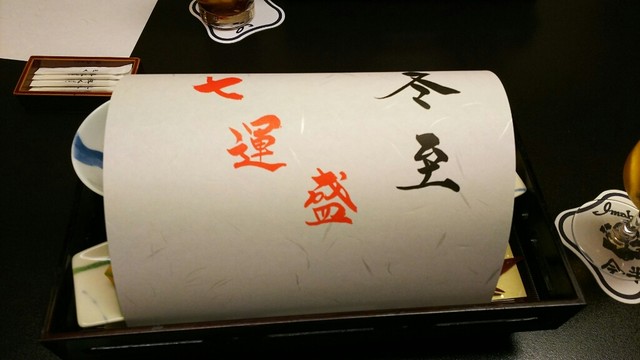 冬至
七運盛